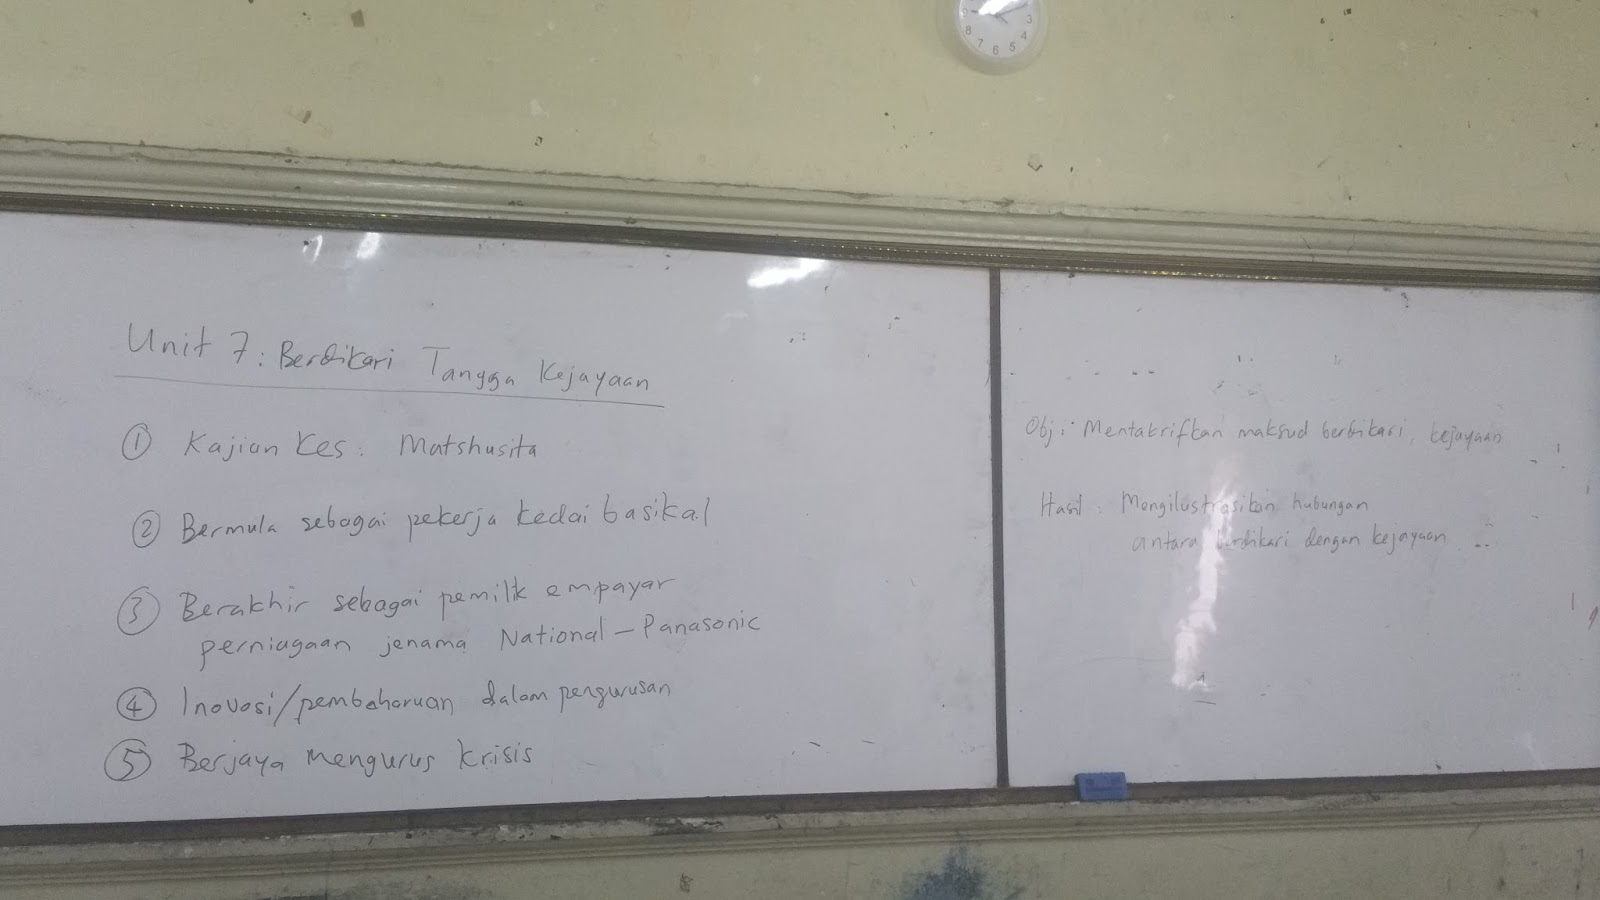 Unit 7: Berdikari Tangga Kejayaan
① Kajian Kes: Matshusita
② Bermula sebagai pekerja kedai basikal
③ Berakhir sebagai pemilik empayar
perniagaan jenama National-Panasonic
④ Inovasi/pembaharuan dalam pengurusan
⑤ Berjaya mengurus krisis
Obj: Mentakrifkan maksud berdikari, kejayaan
Hasil: Mengilustrasikan hubungan
antara berdikari dengan kejayaan
9 3
8 4
7 6 5